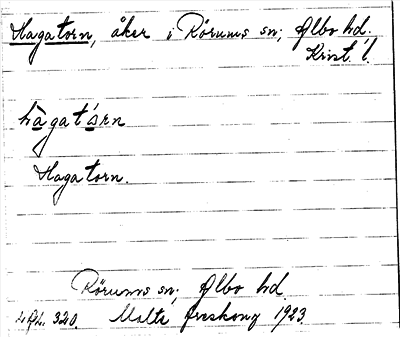 Hagatorn, åker i Rörums sn; Albo hd.
Krist. l.
hagatårn
Hagatorn.
Rörums sn; Albo hd
320. Malte 1923.